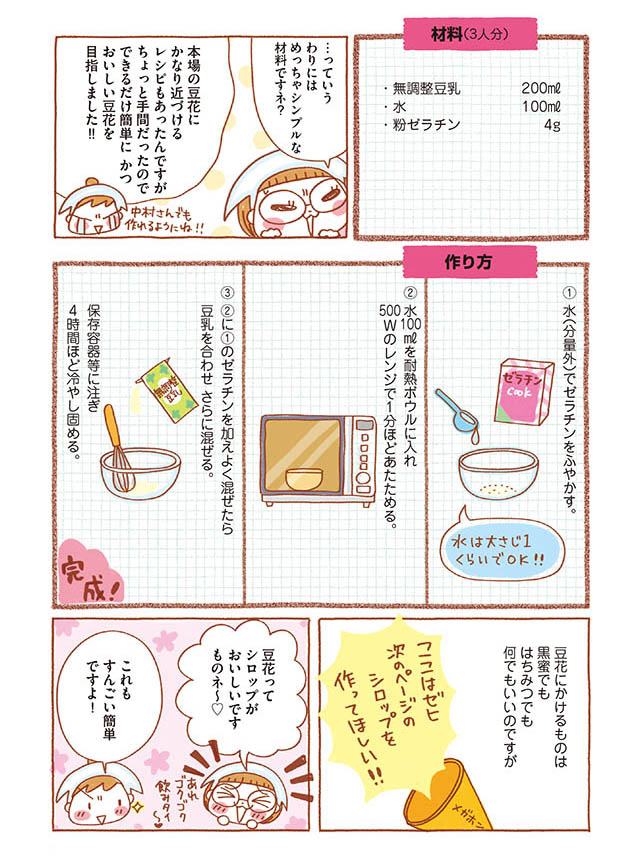 材料(3人分)
・無調整豆乳 200㎖
・水 100㎖
・粉ゼラチン 4g
…っていう
わりには
めっちゃシンプルな
材料ですネ?
本場の豆花に
かなり近づける
レシピもあったんですが
ちょっと手間だったので
できるだけ簡単に かつ
おいしい豆花を
目指しました!!
中村さんでも
作れるようにね!!
作り方
① 水(分量外)でゼラチンをふやかす。
ゼラチン
Cook
水は大さじ1
くらいでOK!!
② 水100㎖を耐熱ボウルに入れ
500Wのレンジで1分ほどあたためる。
③ ②に①のゼラチンを加えよく混ぜたら
豆乳を合わせ さらに混ぜる。
無調整
豆乳
保存容器等に注ぎ
4時間ほど冷やし固める。
完成!
豆花にかけるものは
黒蜜でも
はちみつでも
何でもいいのですが
ココはゼヒ
次のページの
シロップを
作ってほしい!!
メガホン
豆花って
シロップが
おいしいです
ものネ〜♡
あれ
ゴクゴク
飲みタイ〜
これも
すんごい簡単
ですよ!